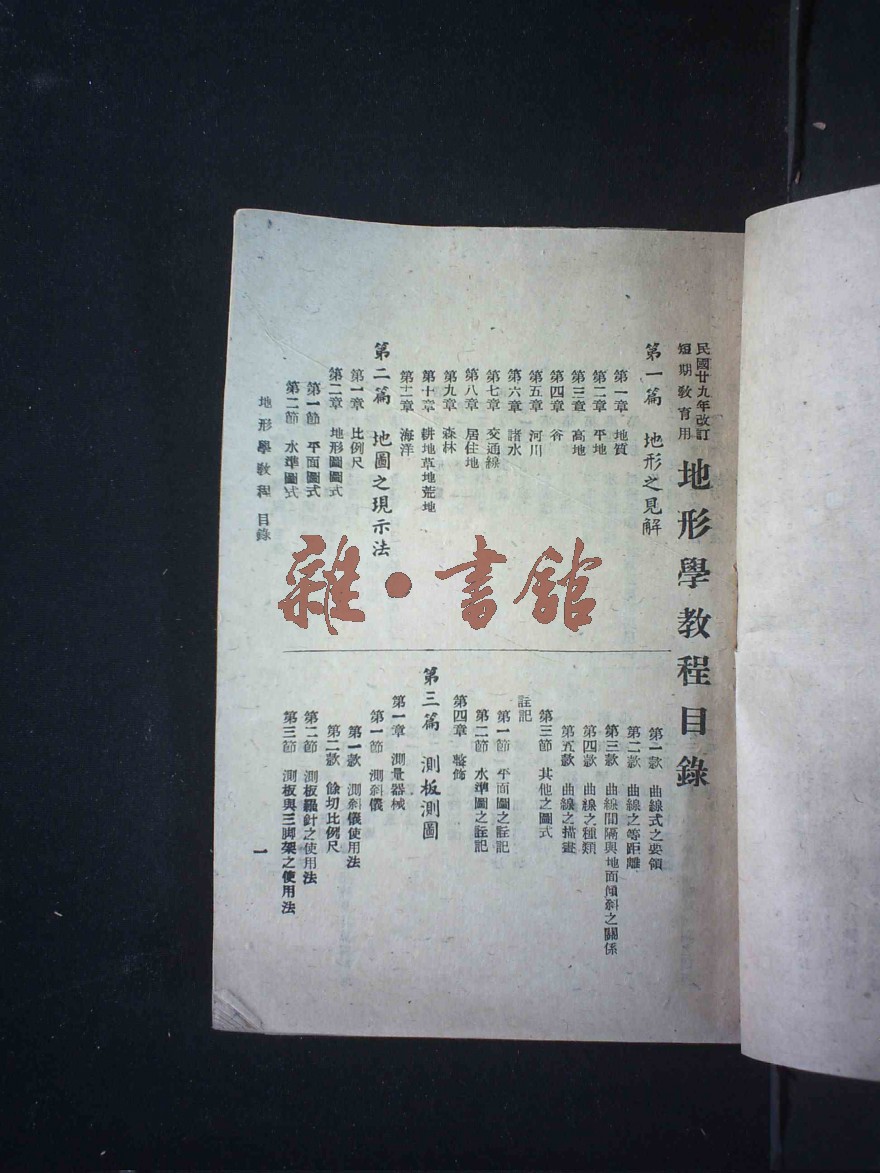 民國廿九年改訂
短期教育用
地形學教程目錄
第一篇 地形之見解
第一章 地質
第二章 平地
第三章 高地
第四章 谷
第五章 河川
第六章 諸水
第七章 交通線
第八章 居住地
第九章 森林
第十章 耕地草地荒地
第十一章 海洋
第二篇 地圖之現示法
第一章 比例尺
第二章 地形圖圖式
第一節 平面圖式
第二節 水準圖式
第一款 曲線式之要領
第二款 曲線之等距離
第三款 曲線間隔與地面傾斜之關係
第四款 曲線之種類
第五款 曲線之描畫
第三節 其他之圖式
註記
第一節 平面圖之註記
第二節 水準圖之註記
第四章 整飾
第三篇 測板測圖
第一章 測量器械
第一節 測斜儀
第一款 測斜儀使用法
第二款 餘切比例尺
第二節 測板羅針之使用法
第三節 測板與三脚架之使用法
地形學教程 目錄
一
雜·書館